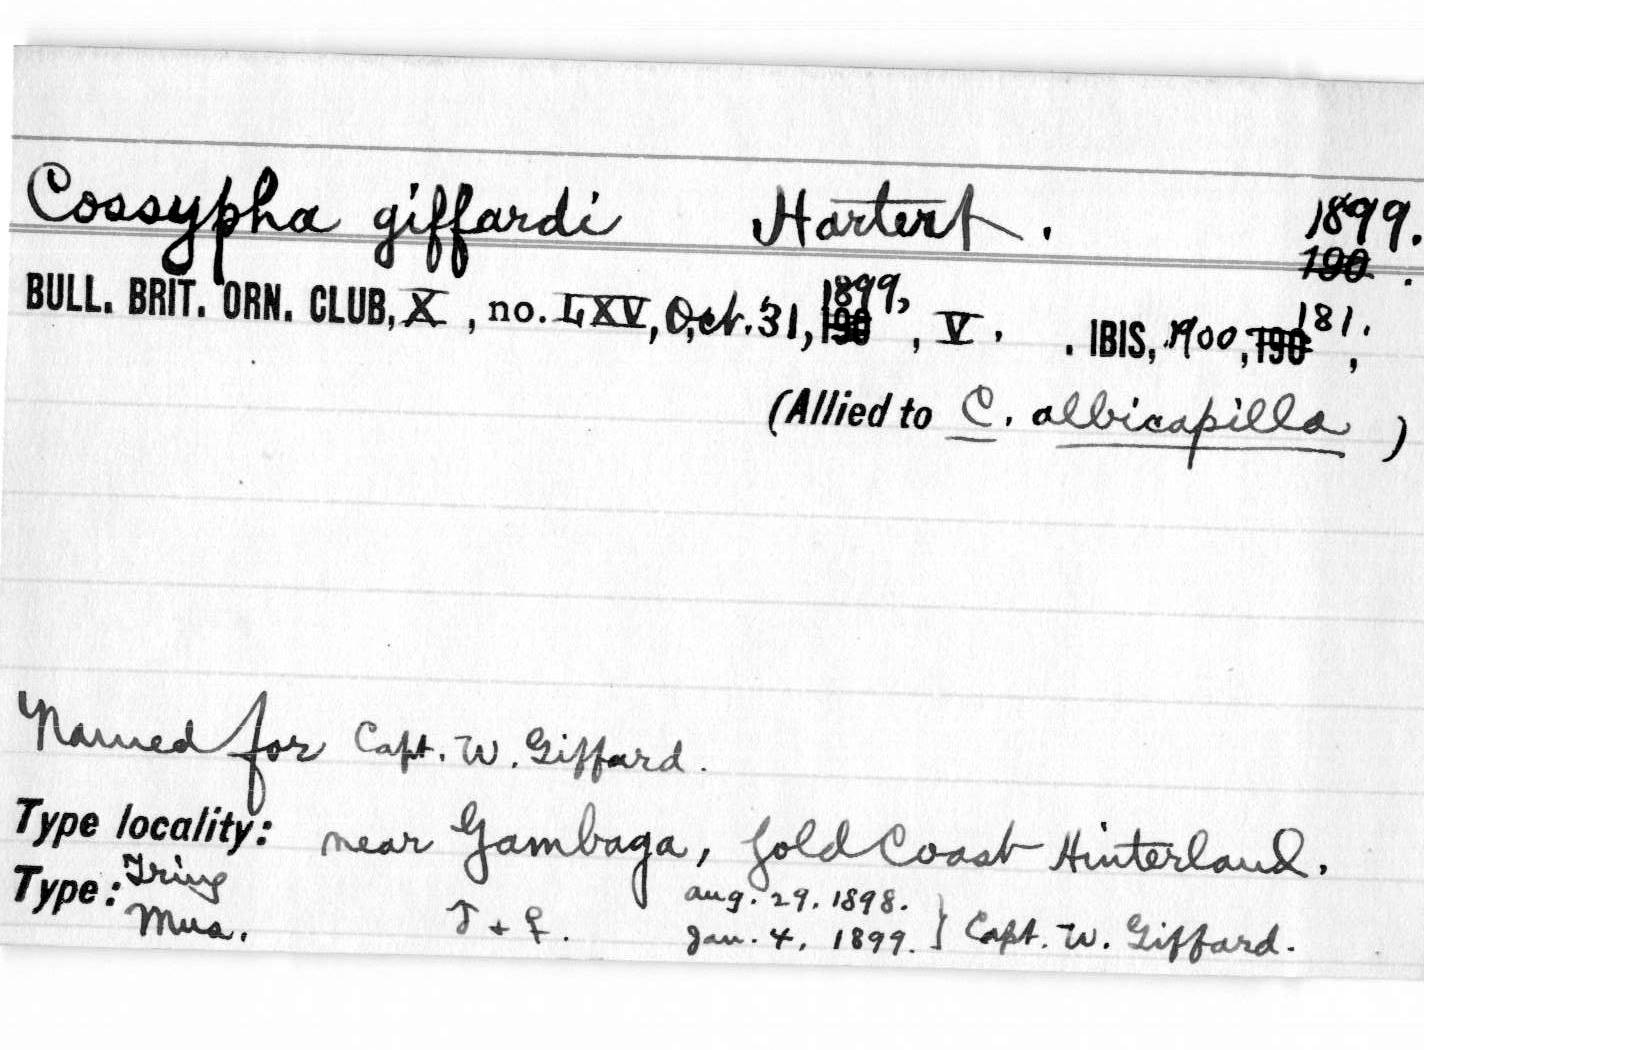 Cossypha giffardi Hartert. 1899.
190 .
BULL. BRIT. ORN. CLUB, X , no. LXV, Oct. 31, 190 1899, , V. . IBIS, 1900, 190 181. ,
(Allied to C. albicapilla )
Named for Capt. W. Giffard.
Type locality: near Gambaga, Gold Coast Hinterland.
Type: Tring Mus. ♂ + ♀. Aug. 29, 1898. Jan. 4, 1899. } Capt. W. Giffard.